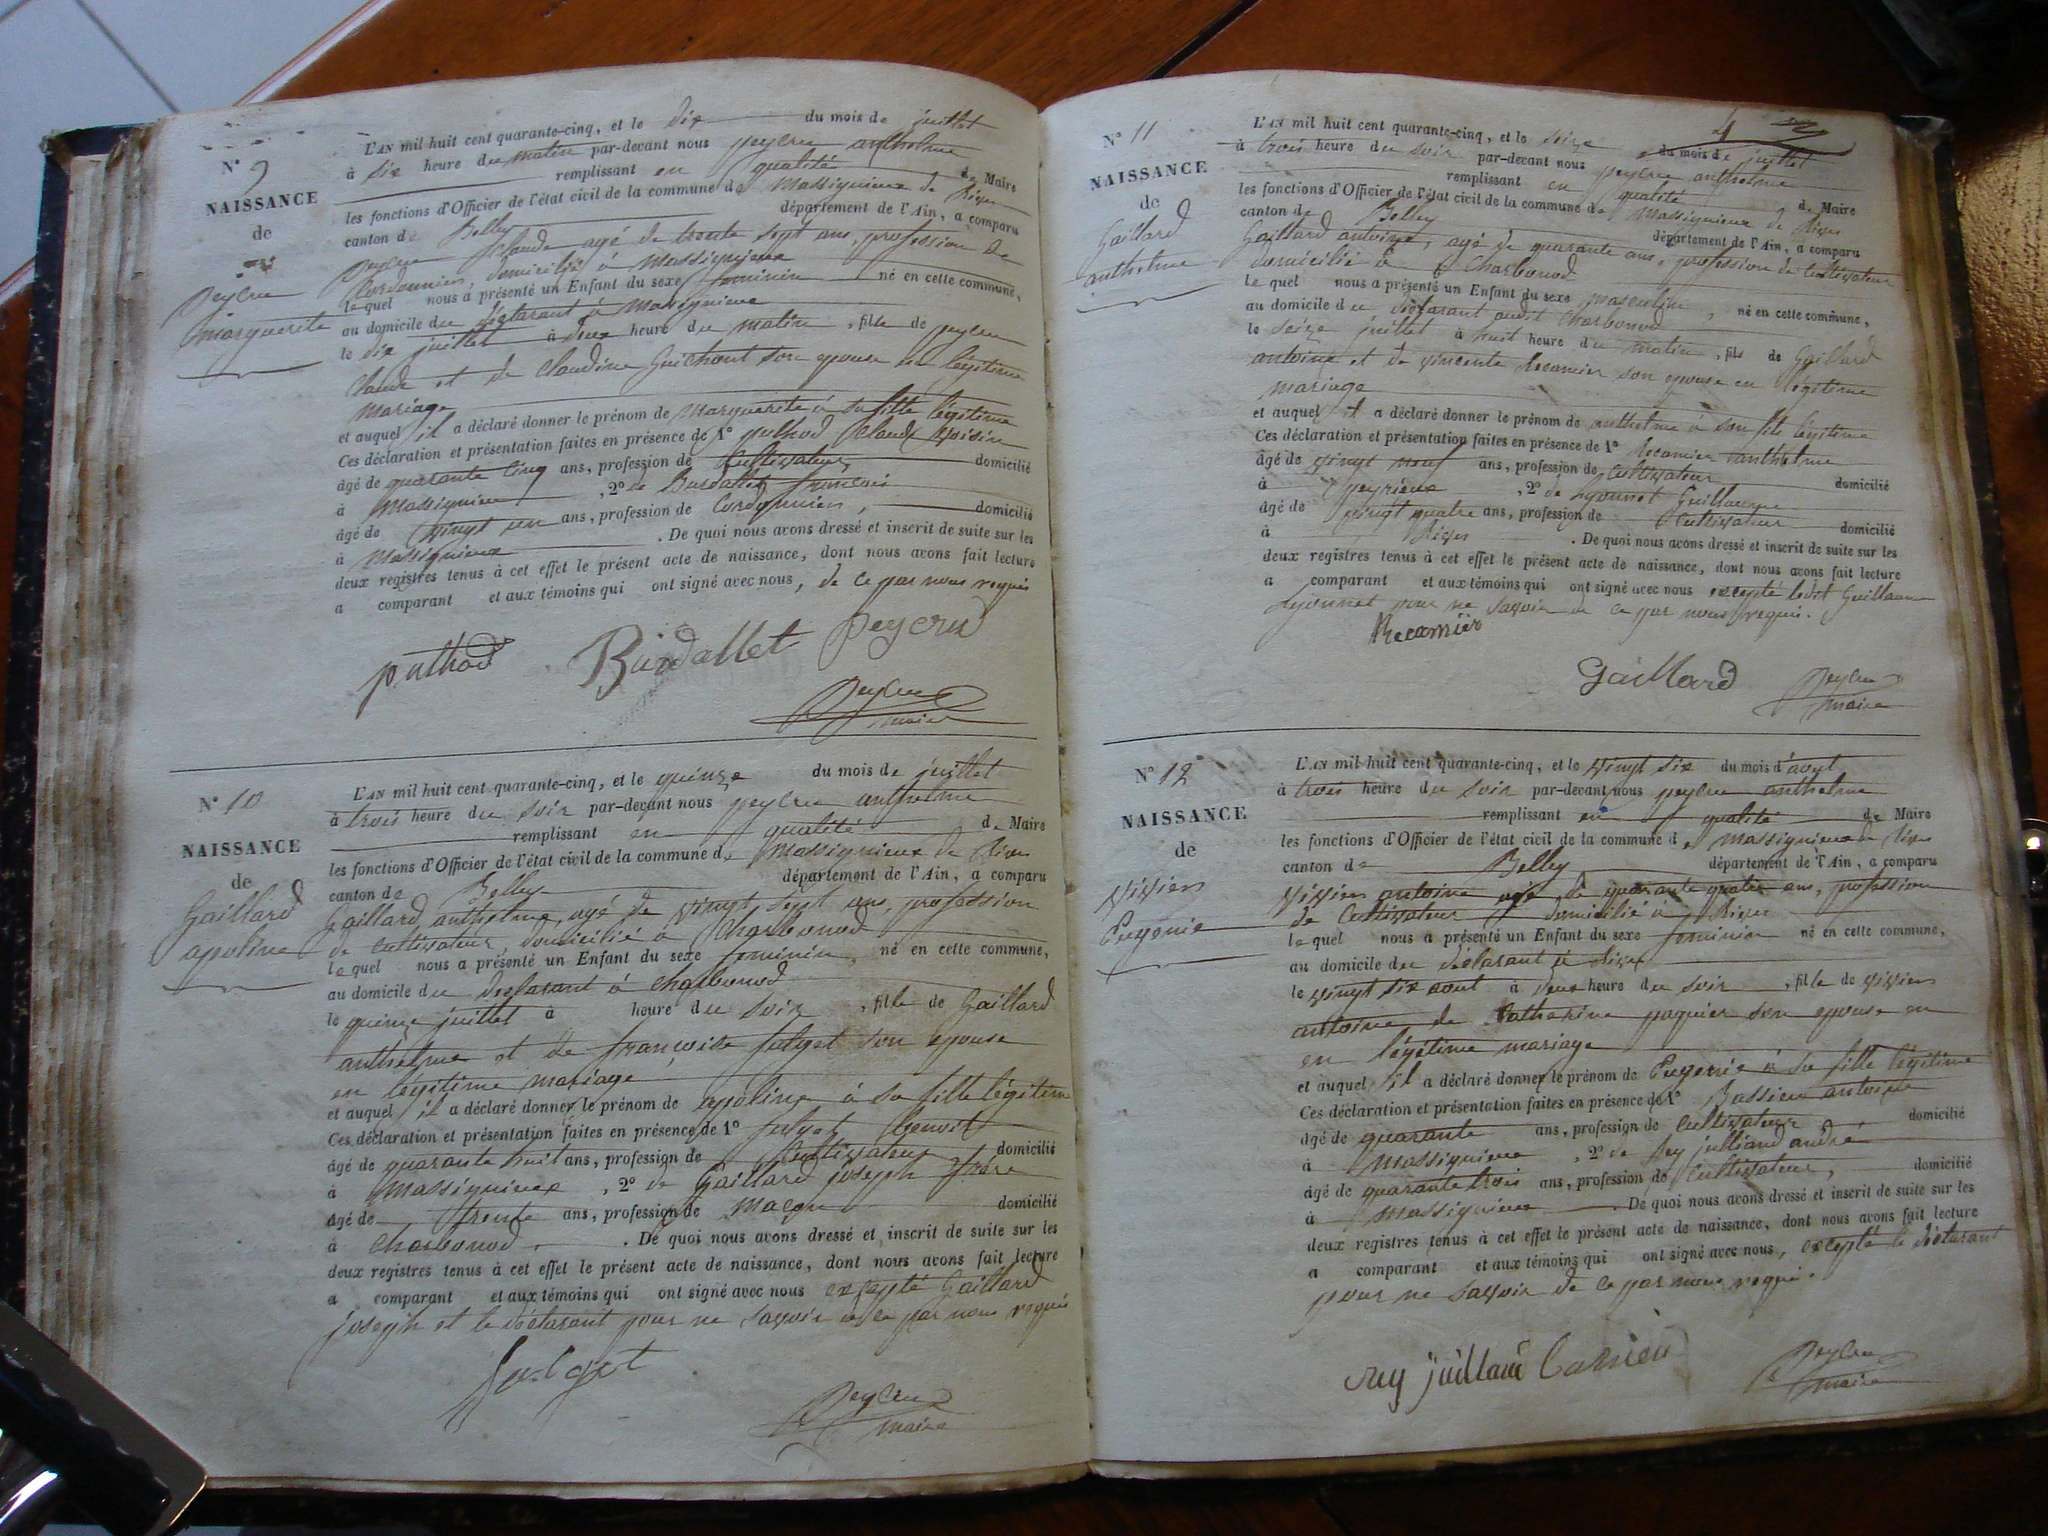 N° 9
NAISSANCE
de
Peycru
marguerite
L'AN mil huit cent quarante-cinq, et le dix du mois de juillet
à six heure du matin par-devant nous peycru anthelme
remplissant en qualité de Maire
les fonctions d'Officier de l'état civil de la commune de Massignieux de Rives
canton de Belley département de l'Ain, a comparu
Peycru Claude agé de trente sept ans, profession de
Cordonnier, domicilié à Massignieux
le quel nous a présenté un Enfant du sexe feminin né en cette commune,
au domicile du déclarant à Massignieux
le dix juillet à deux heure du matin, fille de peycru
Claude et de Claudine Guichont son epouse en légitime
mariage
et auquel il a déclaré donner le prénom de Marguerite à sa fille légitime
Ces déclaration et présentation faites en présence de 1° puthod Claude voisin
âgé de quarante cinq ans, profession de Cultivateur, domicilié
à Massignieux, 2° de Burdallet françois
âgé de vingt un ans, profession de Cordonnier, domicilié
à Massignieux. De quoi nous avons dressé et inscrit de suite sur les
deux registres tenus à cet effet le présent acte de naissance, dont nous avons fait lecture
a comparant et aux témoins qui ont signé avec nous, de ce par nous requis
puthod Burdallet Peycru
Peycru
maire
N° 10
NAISSANCE
de
Gaillard
apoline
L'AN mil huit cent quarante-cinq, et le quinze du mois de juillet
à trois heure du soir par-devant nous peycru anthelme
remplissant en qualité de Maire
les fonctions d'Officier de l'état civil de la commune de Massignieux de Rives
canton de Belley département de l'Ain, a comparu
Gaillard anthelme, agé de vingt sept ans, profession
de Cultivateur, domicilié à Charbonod
le quel nous a présenté un Enfant du sexe feminin, né en cette commune,
au domicile du declarant à charbonod
le quinze juillet à heure du soir, fille de Gaillard
anthelme et de françoise son epouse
en légitime mariage
et auquel il a déclaré donner le prénom de apoline à sa fille légitime
Ces déclaration et présentation faites en présence de 1° Benoit
âgé de quarante huit ans, profession de Cultivateur domicilié
à Massignieux, 2° de Gaillard joseph frère
âgé de trente ans, profession de maçon domicilié
à Charbonod. De quoi nous avons dressé et inscrit de suite sur les
deux registres tenus à cet effet le présent acte de naissance, dont nous avons fait lecture
a comparant et aux témoins qui ont signé avec nous excepté Gaillard
joseph et le déclarant pour ne savoir de ce par nous requis
Peycru
maire
N° 11
NAISSANCE
de
Gaillard
anthelme
L'AN mil huit cent quarante-cinq, et le seize du mois de juillet
à trois heure du soir par-devant nous peycru anthelme
remplissant en qualité de Maire
les fonctions d'Officier de l'état civil de la commune de Massignieux de Rives
canton de Belley département de l'Ain, a comparu
Gaillard antoine, agé de quarante ans, profession de Cultivateur
domicilié à Charbonod
le quel nous a présenté un Enfant du sexe masculin, né en cette commune,
au domicile du déclarant audit Charbonod
le seize juillet à huit heure du matin, fils de Gaillard
antoine et de vincente Recamier son epouse en légitime
mariage
et auquel il a déclaré donner le prénom de anthelme à son fils légitime
Ces déclaration et présentation faites en présence de 1° Recamier anthelme
âgé de vingt neuf ans, profession de Cultivateur domicilié
à peyrieux, 2° de Lyonnet Guillaume
âgé de vingt quatre ans, profession de Cultivateur domicilié
à Rives. De quoi nous avons dressé et inscrit de suite sur les
deux registres tenus à cet effet le présent acte de naissance, dont nous avons fait lecture
a comparant et aux témoins qui ont signé avec nous excepté ledit Guillaume
Lyonnet pour ne savoir de ce par nous requis.
Recamier
Gaillard
Peycru
maire
N° 12
NAISSANCE
de
Vivien
Eugenie
L'AN mil huit cent quarante-cinq, et le vingt six du mois d'aout
à trois heure du soir par-devant nous peycru anthelme
remplissant en qualité de Maire
les fonctions d'Officier de l'état civil de la commune de Massignieux de Rives
canton de Belley département de l'Ain, a comparu
Vivien antoine agé de quarante quatre ans, profession
de Cultivateur domicilié à Rives
le quel nous a présenté un Enfant du sexe feminin né en cette commune,
au domicile du déclarant à Rives
le vingt six aout à deux heure du soir, fille de Vivien
antoine de Catherine paquier son epouse en
en légitime mariage
et auquel il a déclaré donner le prénom de Eugenie à sa fille légitime
Ces déclaration et présentation faites en présence de 1° antoine
âgé de quarante ans, profession de Cultivateur domicilié
à Massignieux, 2° de Rey juilland andré
âgé de quarante trois ans, profession de Cultivateur, domicilié
à Massignieux. De quoi nous avons dressé et inscrit de suite sur les
deux registres tenus à cet effet le présent acte de naissance, dont nous avons fait lecture
a comparant et aux témoins qui ont signé avec nous, excepté le déclarant
pour ne savoir de ce par nous requis.
Rey juilland
Peycru
maire